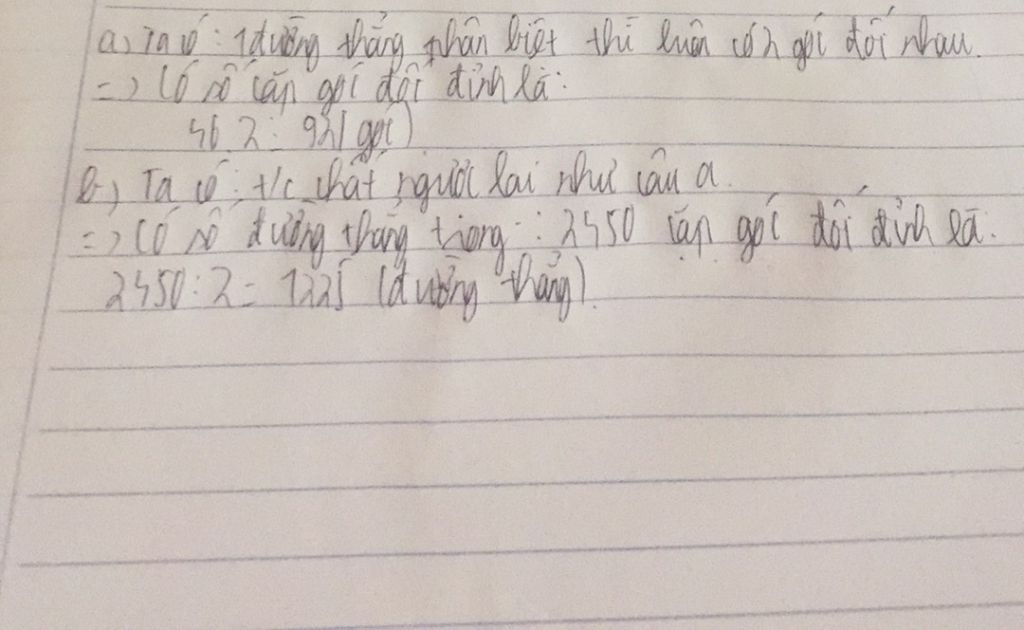 a) Ta có: 1 đường thẳng phân biệt thì luôn có 2 góc đối nhau.
=> Có số cặp góc đối đỉnh là:
46.2 = 92 (góc)
b) Ta có: t/c chất ngược lại như câu a.
=> Có số đường thẳng trong: 2450 cặp góc đối đỉnh là:
2450 : 2 = 1225 (đường thẳng).